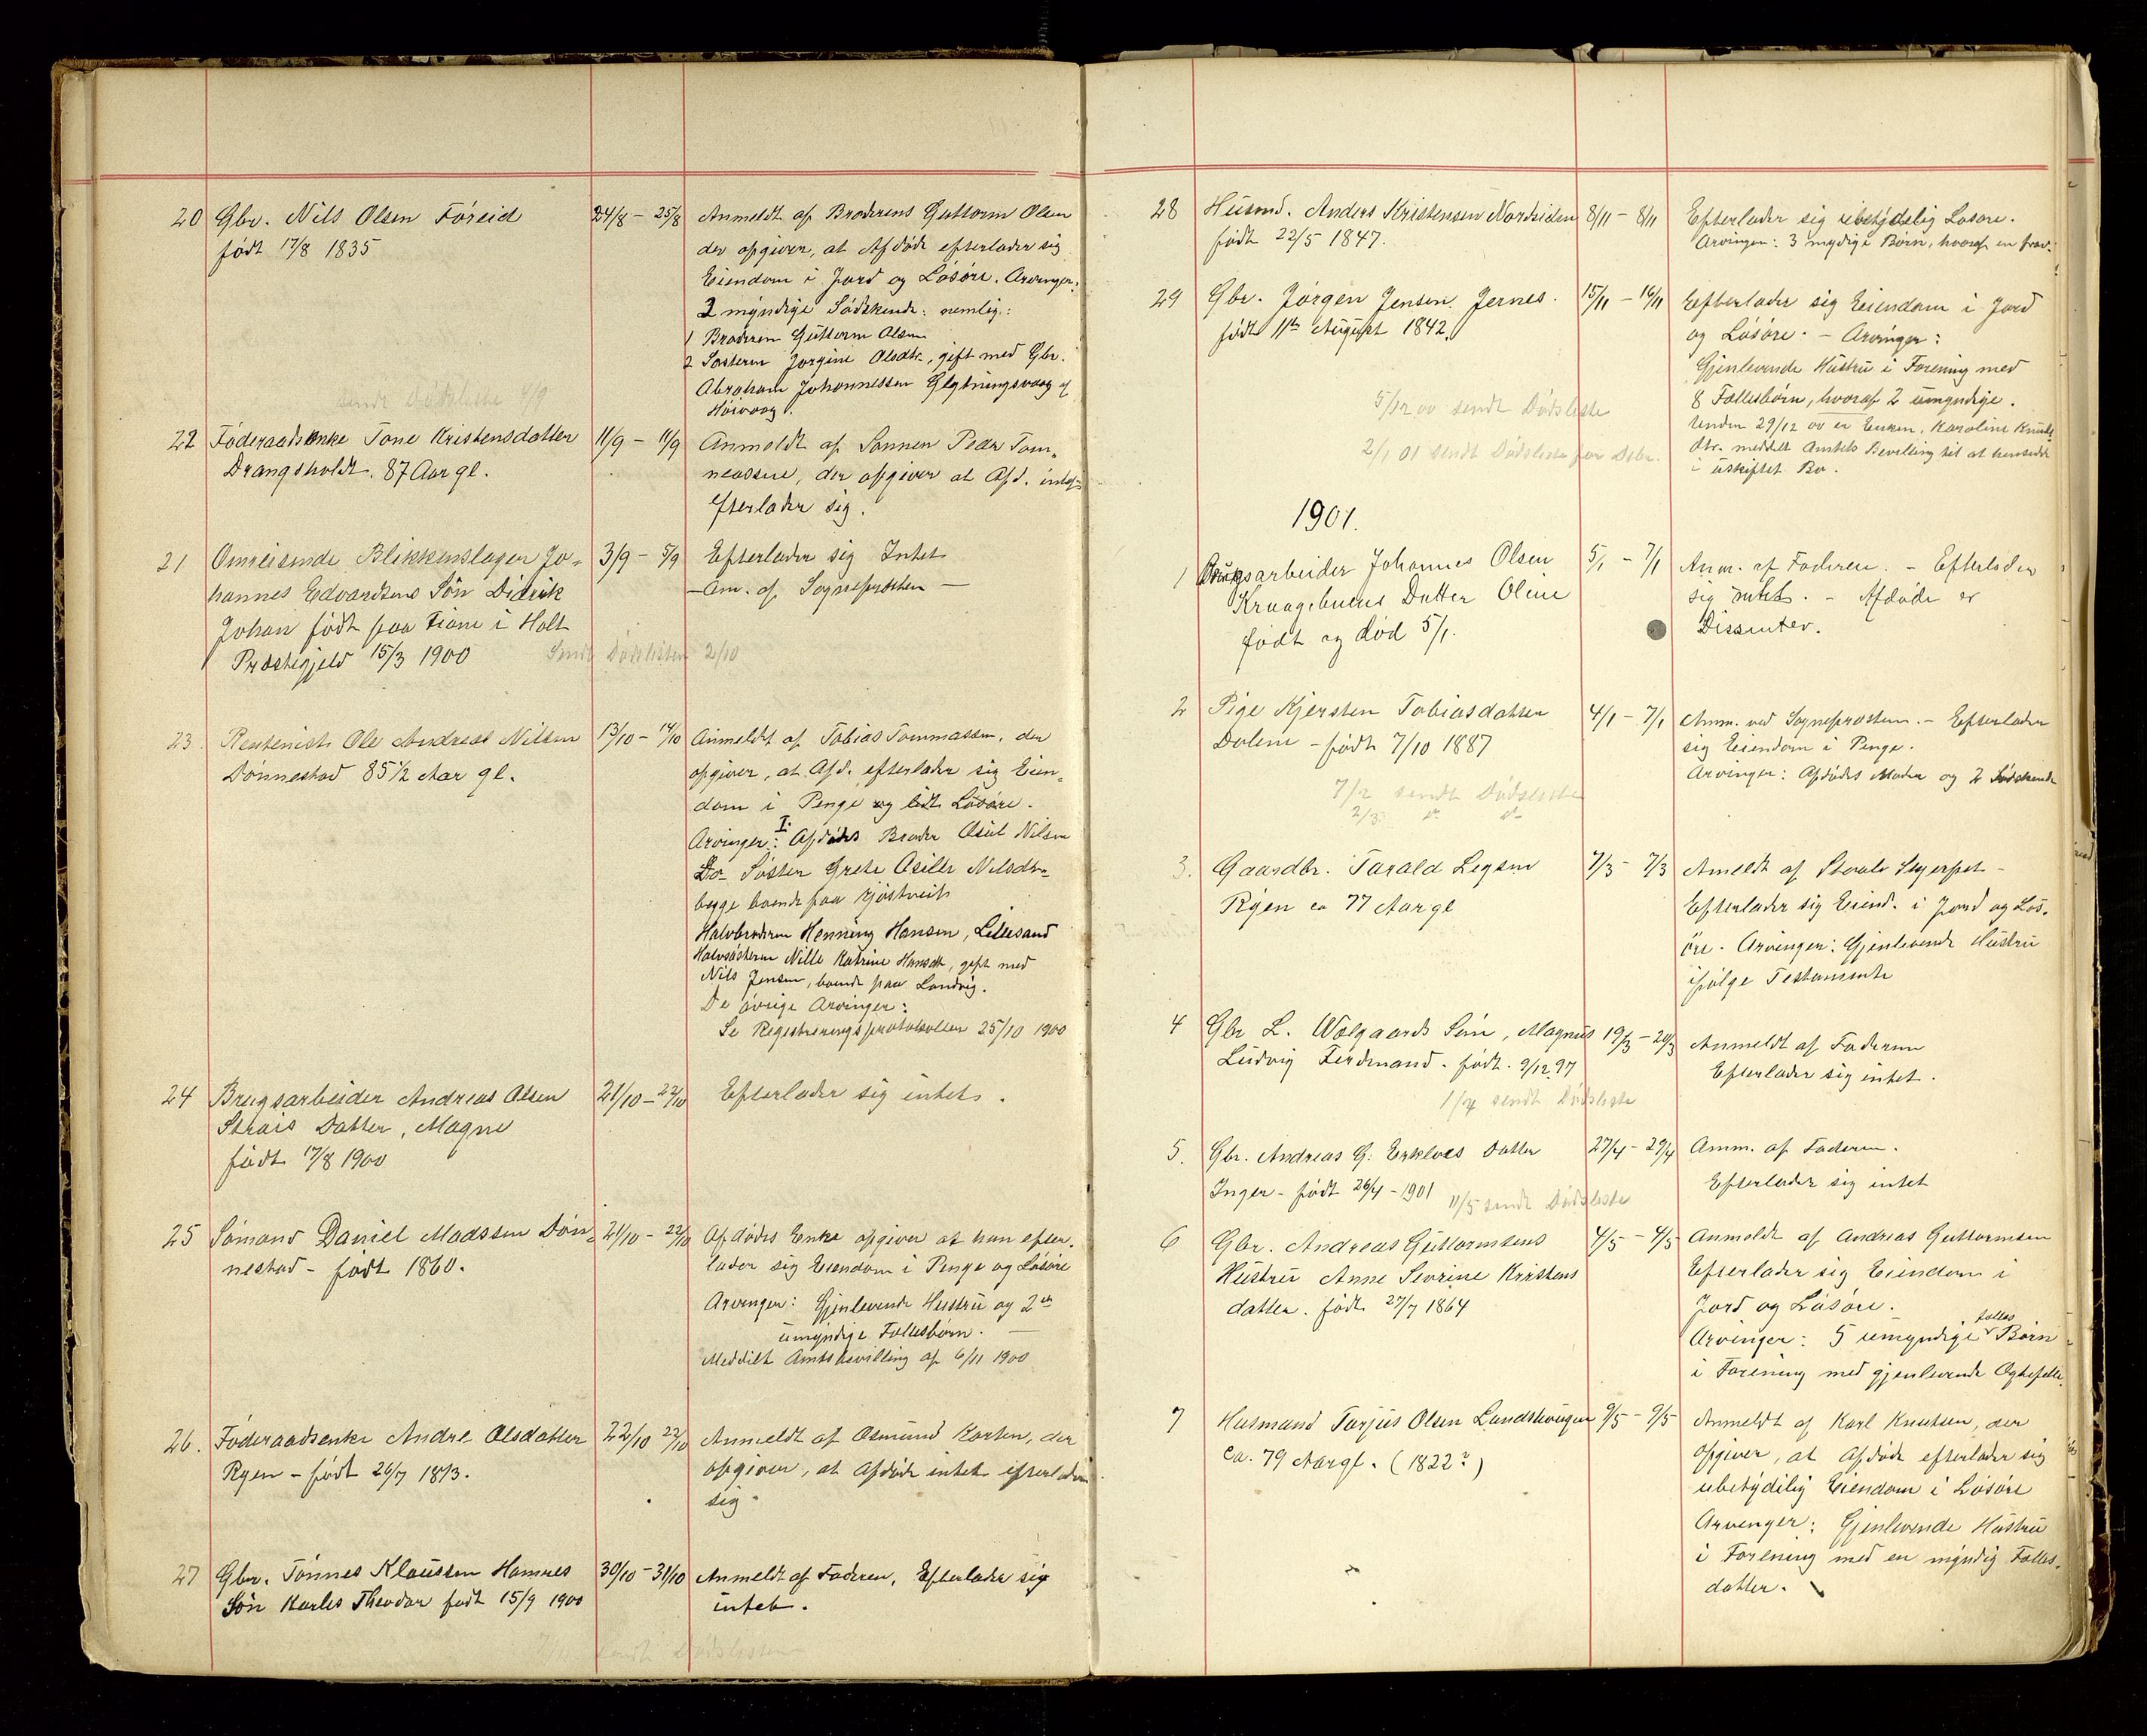 20 Gbr. Nils Olsen Föreid 24/8 - 25/8
født 17/8 1835
Anmeldt af Broderens Guttorm Olsen
der opgiver, at Afdøde efterlader sig
Eiendom i Jord og Løsøre. Arvinger:
2 myndige Sødskende: nemlig:
1 Broderen Guttorm Olsen
2 Søsteren Jørgine Olsdtr., gift med Gbr.
Abraham Johannessen
Høivaag.
sendt Dødsliste 4/9
22 Føderaadsenke Tone Kristensdatter 11/9 - 11/9
Drangsholdt. 87 Aar gl.
Anmeldt af Sønnen Peder Tom-
, der opgiver at Afd. intet
efterlader sig.
21 Omreisende Blikkenslager Jo- 3/9 - 5/9
hannes Edvardsens Søn Didrik
Johan født paa Fiane i Holt
Præstegjeld 15/3 1900
Efterlader sig Intet
- Am. af Sogneprosten -
Sendt Dødslisten 2/10
23. Rentenist Ole Andreas Nilsen 13/10 - 14/10
Dønnestad 85 1/2 Aar gl.
Anmeldt af Tobias Tommassen, der
opgiver, at Afd. efterlader sig Eien-
dom i Penge og lidt Løsøre.
Arvinger: I. Afdødes Broder Osul Nilsen
Do- Søster Grete Osille Nilsdtr-
begge boende paa
Halvbroderen Henning Hansen, Lillesand
Halvsøsteren Nille Katrine Hansdtr, gift med
Nils Jensen, boende paa Landvig.
De øvrige Arvinger:
Se Registreringsprotokollen 25/10 1900
24 Brugsarbeider Andreas Olsen 21/10 - 22/10
Strais Datter, Magne
født 17/8 1900
Efterlader sig intet.
25 Sømand Daniel Madssen Døn- 21/10 - 22/10
nestad - født 1860.
Afdødes Enke opgiver at han efter-
lader sig Eiendom i Penge og Løsøre
Arvinger: Gjenlevende Hustru og 2
umyndige Fællesbørn. -
Meddelt Amtsbevilling af 6/11 1900
26. Føderaadsenke Andre Olsdatter 22/10 22/10
Ryen - født 26/7 1813.
Anmeldt af Osmund Karten, der
opgiver, at Afdøde intet efterlader
sig.
27 Gbr. Tønnes Klaussen Hamres 30/10 - 31/10
Søn Karles Theodor født 15/9 1900
Anmeldt af Faderen, Efterlader sig
intet.
sendt Dødslisten
28 Husmd. Anders Kristensen Nordsiden 8/11 - 8/11
født 22/5 1847.
Efterlader sig ubetydelig Løsøre.
Arvinger: 3 myndige Børn, hvoraf en frav.
29 Gbr. Jørgen Jensen Jernes. 15/11 - 16/11
født 11te August 1842.
Efterlader sig Eiendom i Jord
og Løsøre. - Arvinger:
Gjenlevende Hustru i Forening med
8 Fællesbørn, hvoraf 2 umyndige.
Under 29/12 00 er Enken, Karoline Knuds-
dtr. meddelt Amtets Bevilling til at hensidde
i uskiftet Bo.
5/12 00 sendt Dødsliste
2/1 01 sendt Dødsliste for Debr.
1901.
1 Brugsarbeider Johannes Olsen 5/1 - 7/1
Kraagebuens Datter Oline
født og død 5/1.
Anm. af Faderen. - Efterlader
sig intet. - Afdøde er
Dissenter.
2 Pige Kjersten Tobiasdatter 4/1 - 7/1
Dalene - født 7/10 1887
Anm. ved Sogneprosten. - Efterlader
sig Eiendom i Penge.
Arvinger: Afdødes Moder og 2 Sødskende
7/2 sendt Dødsliste
2/3 do do
3. Gaardbr. Tarald Legsen 7/3 - 7/3
Ryen ca 77 Aar gl
Ameldt af
Efterlader sig Eiend. i Jord og Løs-
øre. Arvinger: Gjenlevende Hustru
ifølge Testamente
4 Gbr L. Wølgaards Søn, Magnus 19/3 - 20/3
Ludvig Ferdinand. født. 9/12 97
Anmeldt af Faderen
Efterlader sig intet.
1/4 sendt Dødsliste
5. Gbr. Andreas G. Erklevs Datter 27/4 - 29/4
Inger - født 26/4 - 1901
Anm. af Faderen.
Efterlader sig intet
11/5 sendt Dødsliste
6 Gbr. Andreas Guttormsens 4/5 - 4/5
Hustru Anne Severine Kristens
datter. født 27/7 1864
Anmeldt af Andreas Guttormsen
Efterlader sig Eiendom i
Jord og Løsøre.
Arvinger: 5 umyndige fælles Børn
i Forening med gjenlevende Egtefælle.
7 Husmand Tarjus Olsen Landshougen 9/5 - 9/5
ca. 79 Aargl. (1822?)
Anmeldt af Karl Knutsen, der
opgiver, at Afdøde efterlader sig
ubetydelig Eiendom i Løsøre
Arvinger: Gjenlevende Hustru
i Forening med en myndig Fælles-
datter.